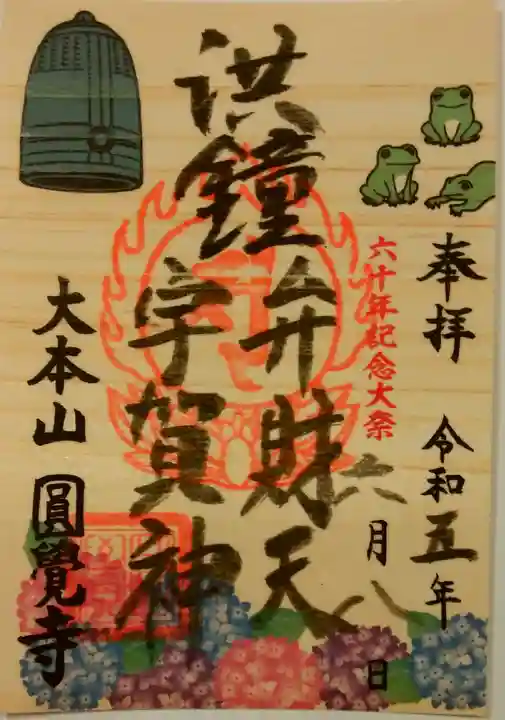 奉拝 令和五年
六月八日
六十年記念大祭
洪鐘
弁財天
宇賀神
大本山 圓覺寺